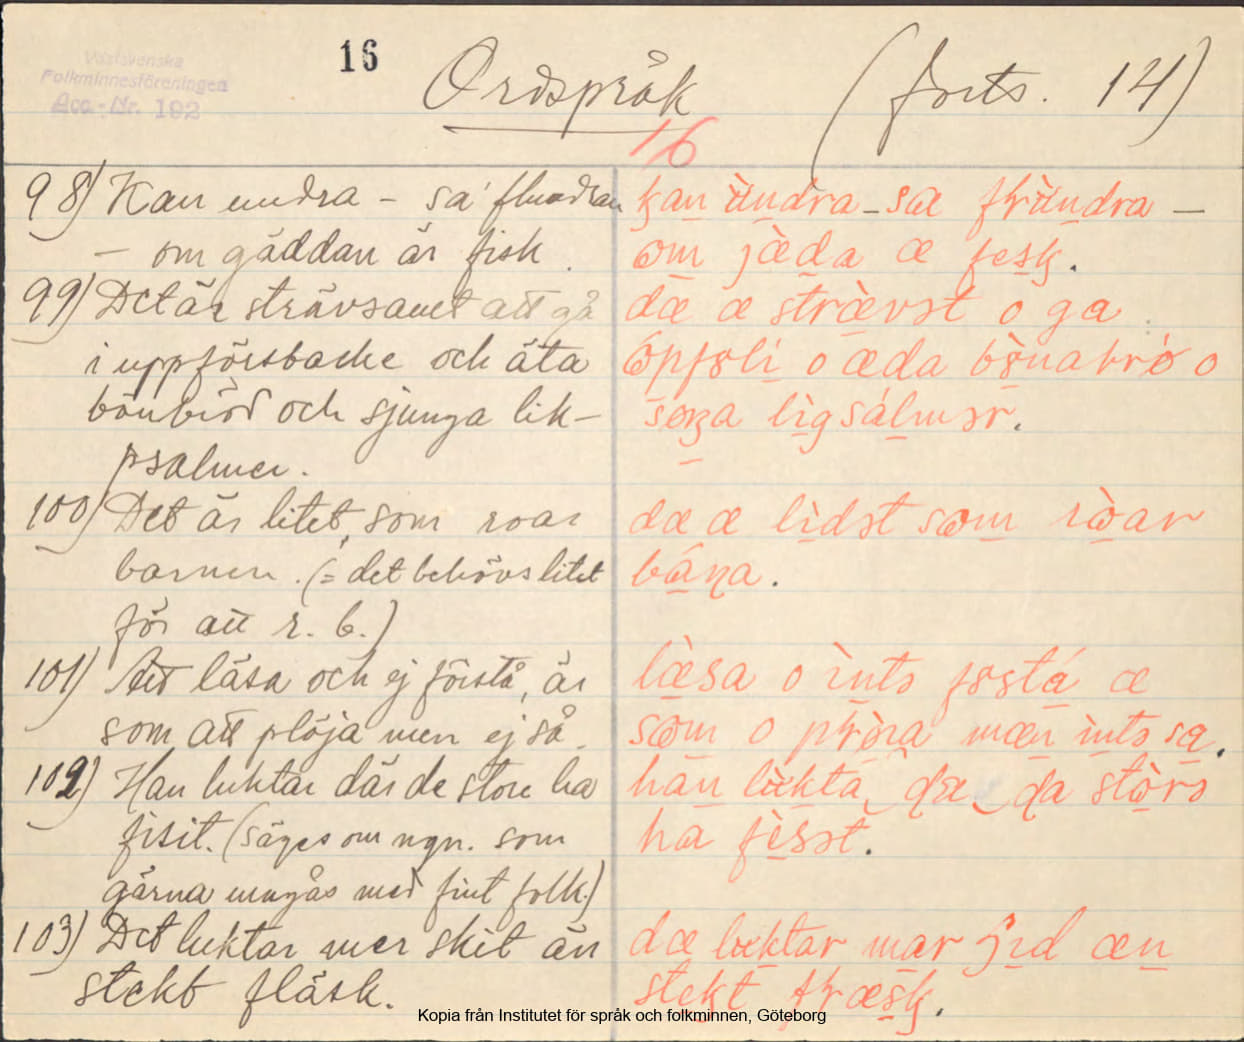 Västsvenska
Folkminnesföreningen
Acc.-Nr. 192
16
Ordspråk (forts. 14)
16
98) Kan undra – sa' flundran
– om gäddan är fisk.
kan ùndra – sæ
om jæ̀da æ fesk.
99) Det är strävsamt att gå
i uppförsbacke och äta
bönbröd och sjunga lik-
psalmer.
dæ æ stræ̀vst o ga
o æda o
100) Det är litet, som roar
barnen. (= det behövs litet
för att r. b.)
dæ æ lìdət som ròar
101) Att läsa och ej förstå, är
som att plöja men ej så.
læ̀sa o ìntə æ
som o mæn ìntə sa.
102) Han luktar där de store ha
fisit. (säges om ngn. som
gärna umgås med fint folk.)
han dæ da
ha fìsət.
103) Det luktar mer skit än
stekt fläsk.
dæ mar æn
stekt
Kopia från Institutet för språk och folkminnen, Göteborg